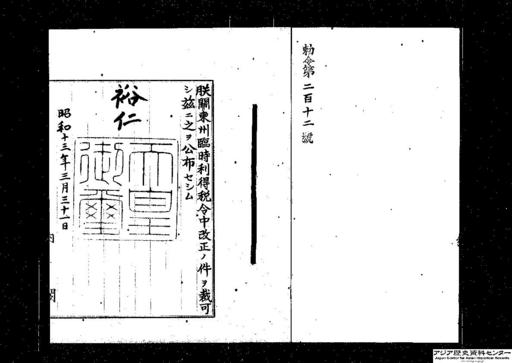 勅令第二百十二號
朕關東州臨時利得税令中改正ノ件ヲ裁可
シ茲ニ之ヲ公布セシム
裕仁
天皇
御璽
昭和十三年三月三十一日
内閣
アジア歴史資料センター
Japan Center for Asian Historical Records